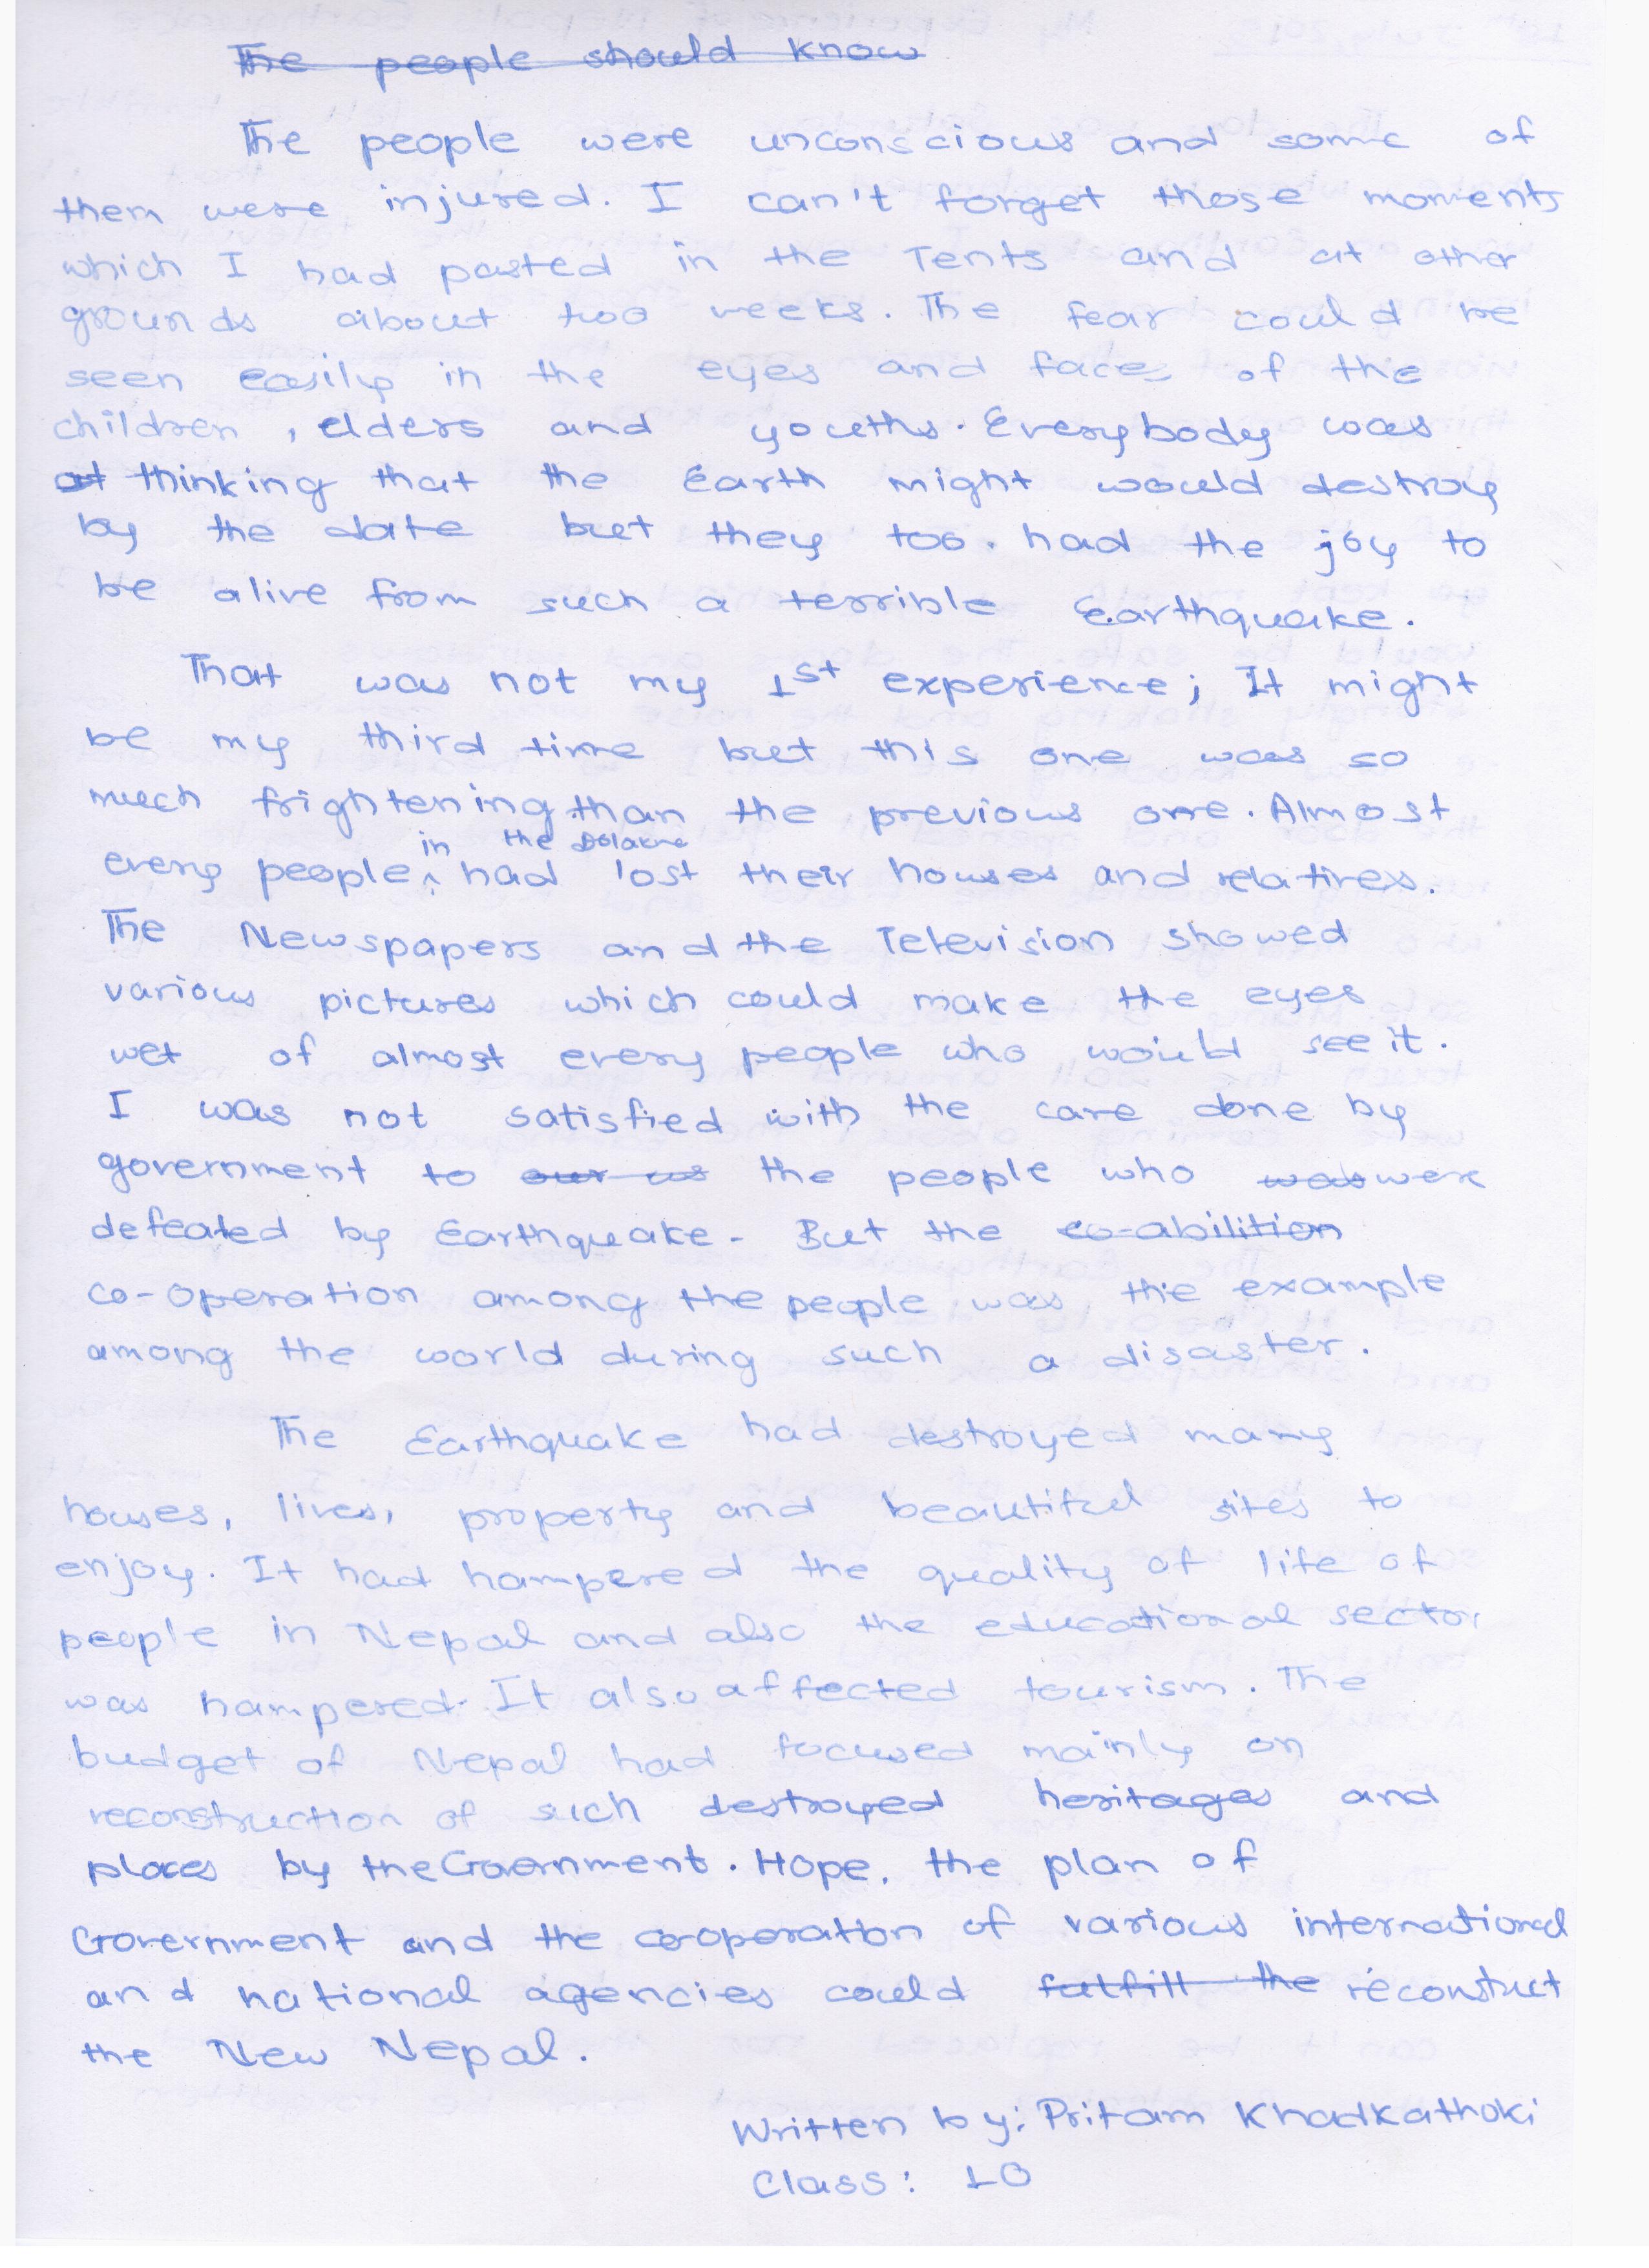 The people should know
The people were unconscious and some of
them were injured. I can't forget those moments
which I had pasted in the Tents and at other
grounds about two weeks. The fear could be
seen easily in the eyes and faces of the
children, elders and youths. Everybody was
at thinking that the Earth might would destroy
by the date but they too. had the joy to
be alive from such a terrible Earthquake.
That was not my 1st experience; It might
be my third time but this one was so
much frightening than the previous one. Almost
in the Dolakha
every people ^ had lost their houses and relatives.
The Newspapers and the Television showed
various pictures which could make the eyes
wet of almost every people who would see it.
I was not satisfied with the care done by
government to our us the people who was were
defeated by Earthquake. But the co-abilition
co-operation among the people was the example
among the world during such a disaster.
The Earthquake had destroyed many
houses, lives, property and beautiful sites to
enjoy. It had hampered the quality of life of
people in Nepal and also the educational sector
was hampered. It also affected tourism. The
budget of Nepal had focused mainly on
reconstruction of such destroyed heritages and
places by the Goernment. Hope, the plan of
Government and the co-operation of various international
and national agencies could fulfill the reconstuct
the New Nepal.
Written by: Pritam Khadkathoki
Class: 10